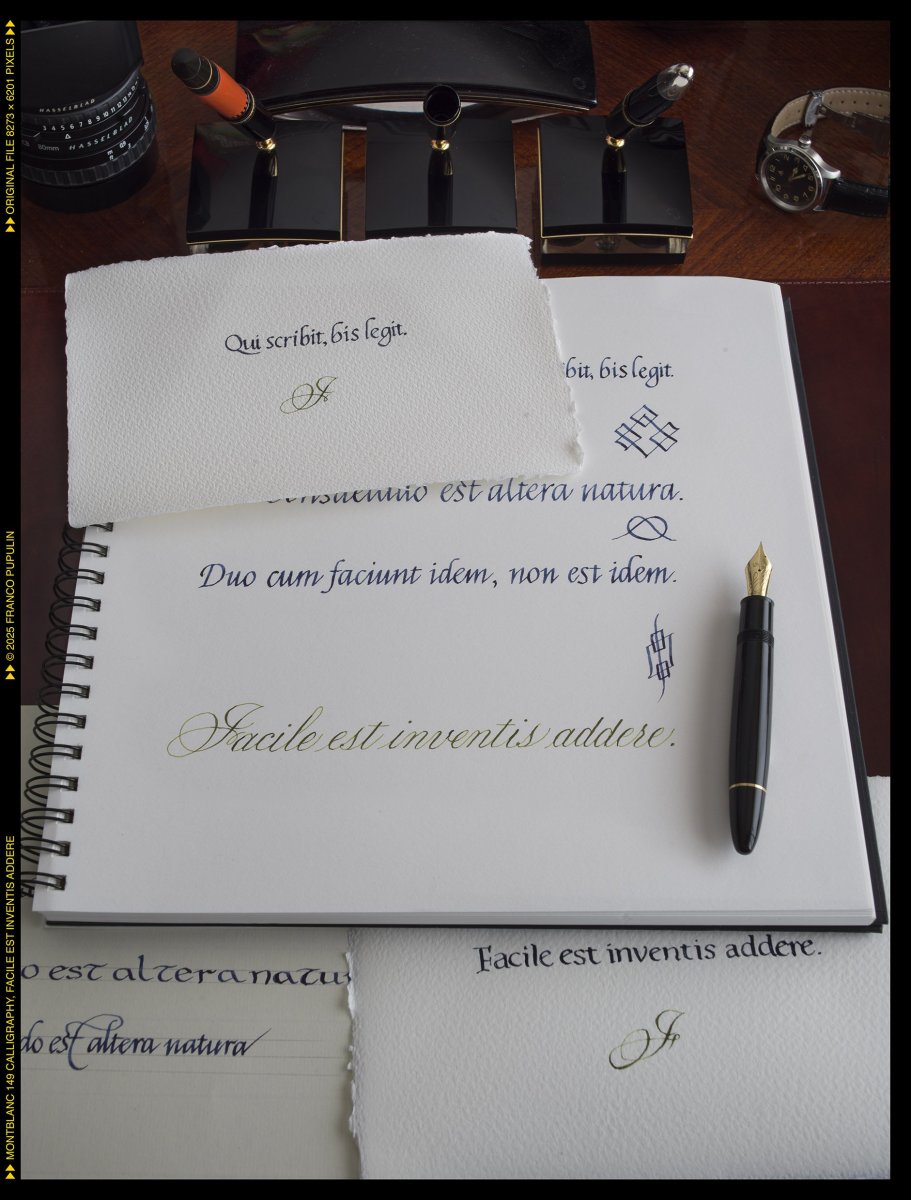 ORIGINAL FILE 8273 × 6201 PIXELS
© 2025 FRANCO PUPULIN
MONTBLANC 149 CALLIGRAPHY, FACILE EST INVENTIS ADDERE
HASSELBLAD
3 4 5 6 7 8 9 10 11 12 13
80mm HASSELBLAD
Qui scribit, bis legit.
F
bit, bis legit.
Consuetudo est altera natura.
Duo cum faciunt idem, non est idem.
Facile est inventis addere.
Facile est inventis addere.
F
o est altera natu
do est altera natura